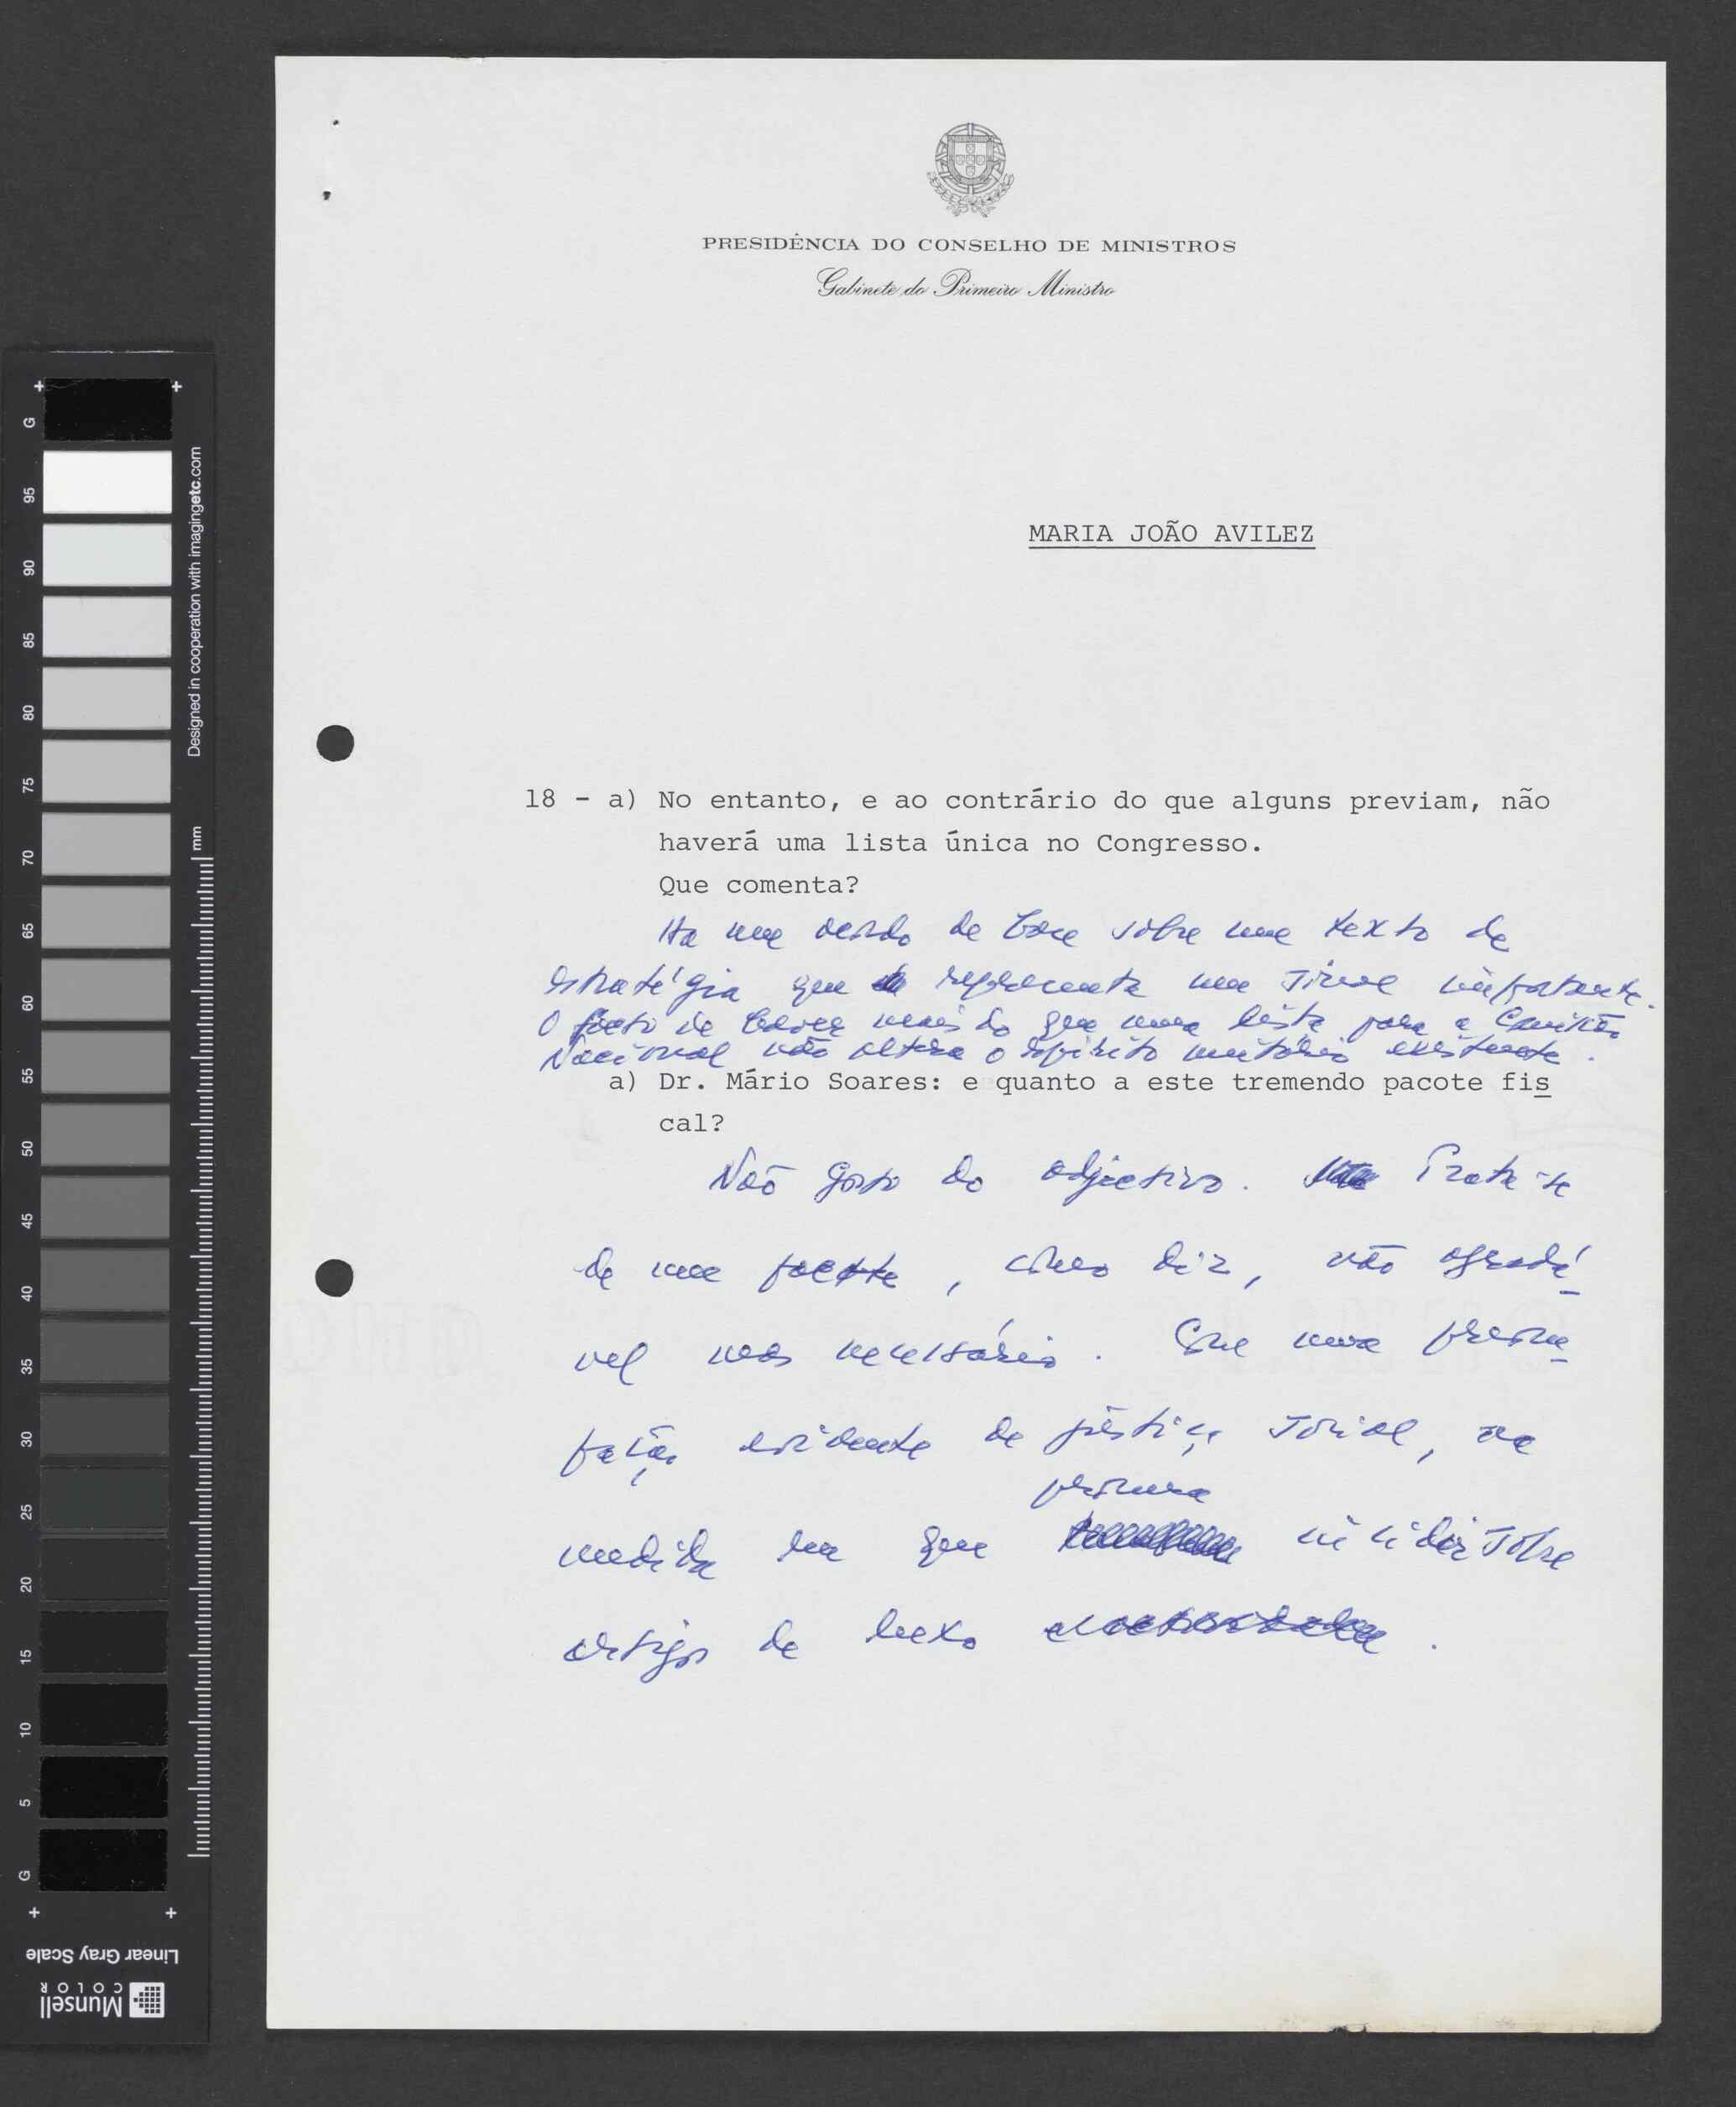 PRESIDÊNCIA DO CONSELHO DE MINISTROS
Gabinete do Primeiro Ministro
MARIA JOÃO AVILEZ
18 - a) No entanto, e ao contrário do que alguns previam, não
haverá uma lista única no Congresso.
Que comenta?
Há um acordo de base sobre um texto de
estratégia que representa um sinal importante.
O facto de haver mais do que uma lista para a Comissão
Nacional não altera o espírito unitário existente.
a) Dr. Mário Soares: e quanto a este tremendo pacote fis
cal?
Não gosto do adjectivo. Trata-se
de um pacote, como diz, não agradá
vel mas necessário. Com uma preocu
pação evidente de justiça social, na
procura
medida em que incidir sobre
artigos de luxo.
G
95
90
85
80
75
70
65
60
55
50
45
40
35
30
25
20
15
10
5
G
Designed in cooperation with imagingetc.com
mm
Linear Gray Scale
Munsell
COLOR